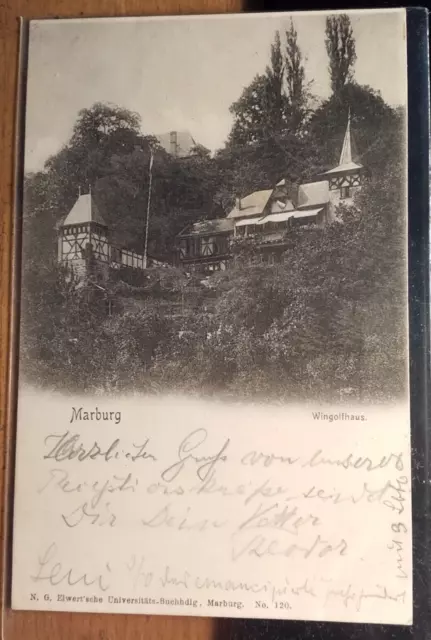 Marburg
Wingolfhaus.
Herzlichen Gruß von unserer
Rezeptionskneipe sendet
Dir Dein Vetter
Theodor
Leni
N. G. Elwert'sche Universitäts-Buchhdlg, Marburg. No. 120.